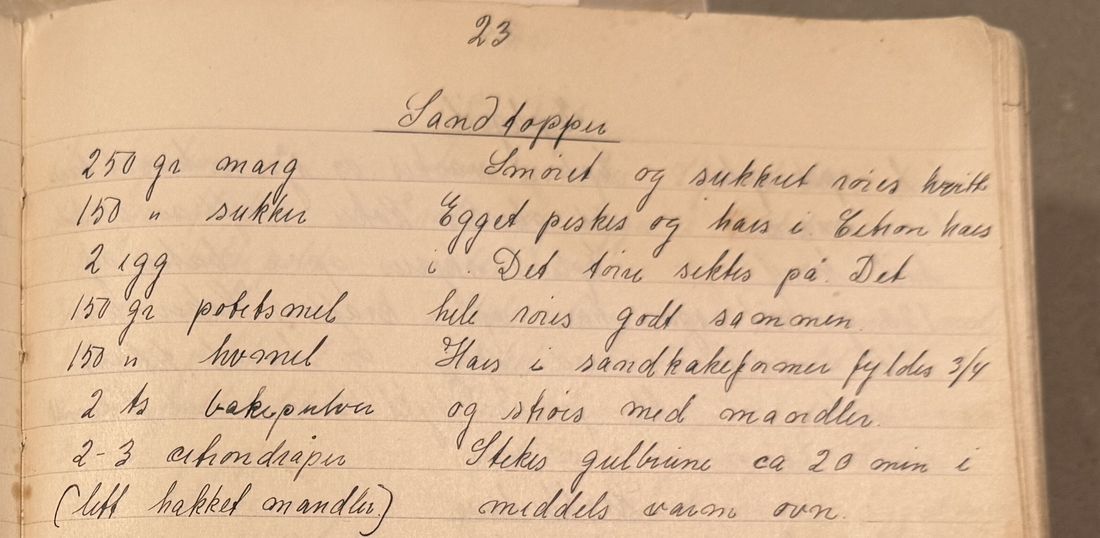 23
Sandtopper
250 gr marg
150 " sukker
2 egg
150 gr potetsmel
150 " hvmel
2 ts bakepulver
2-3 citrondråper
(lett hakket mandler)
Smöret og sukkret röres hvitt
Egget piskes og haes i. Citron haes
i. Det törre siktes på. Det
hele röres godt sammen.
Haes i sandkakeformer fyldes 3/4
og ströes med mandler.
Stekes gulbrune ca 20 min i
middels varm ovn.